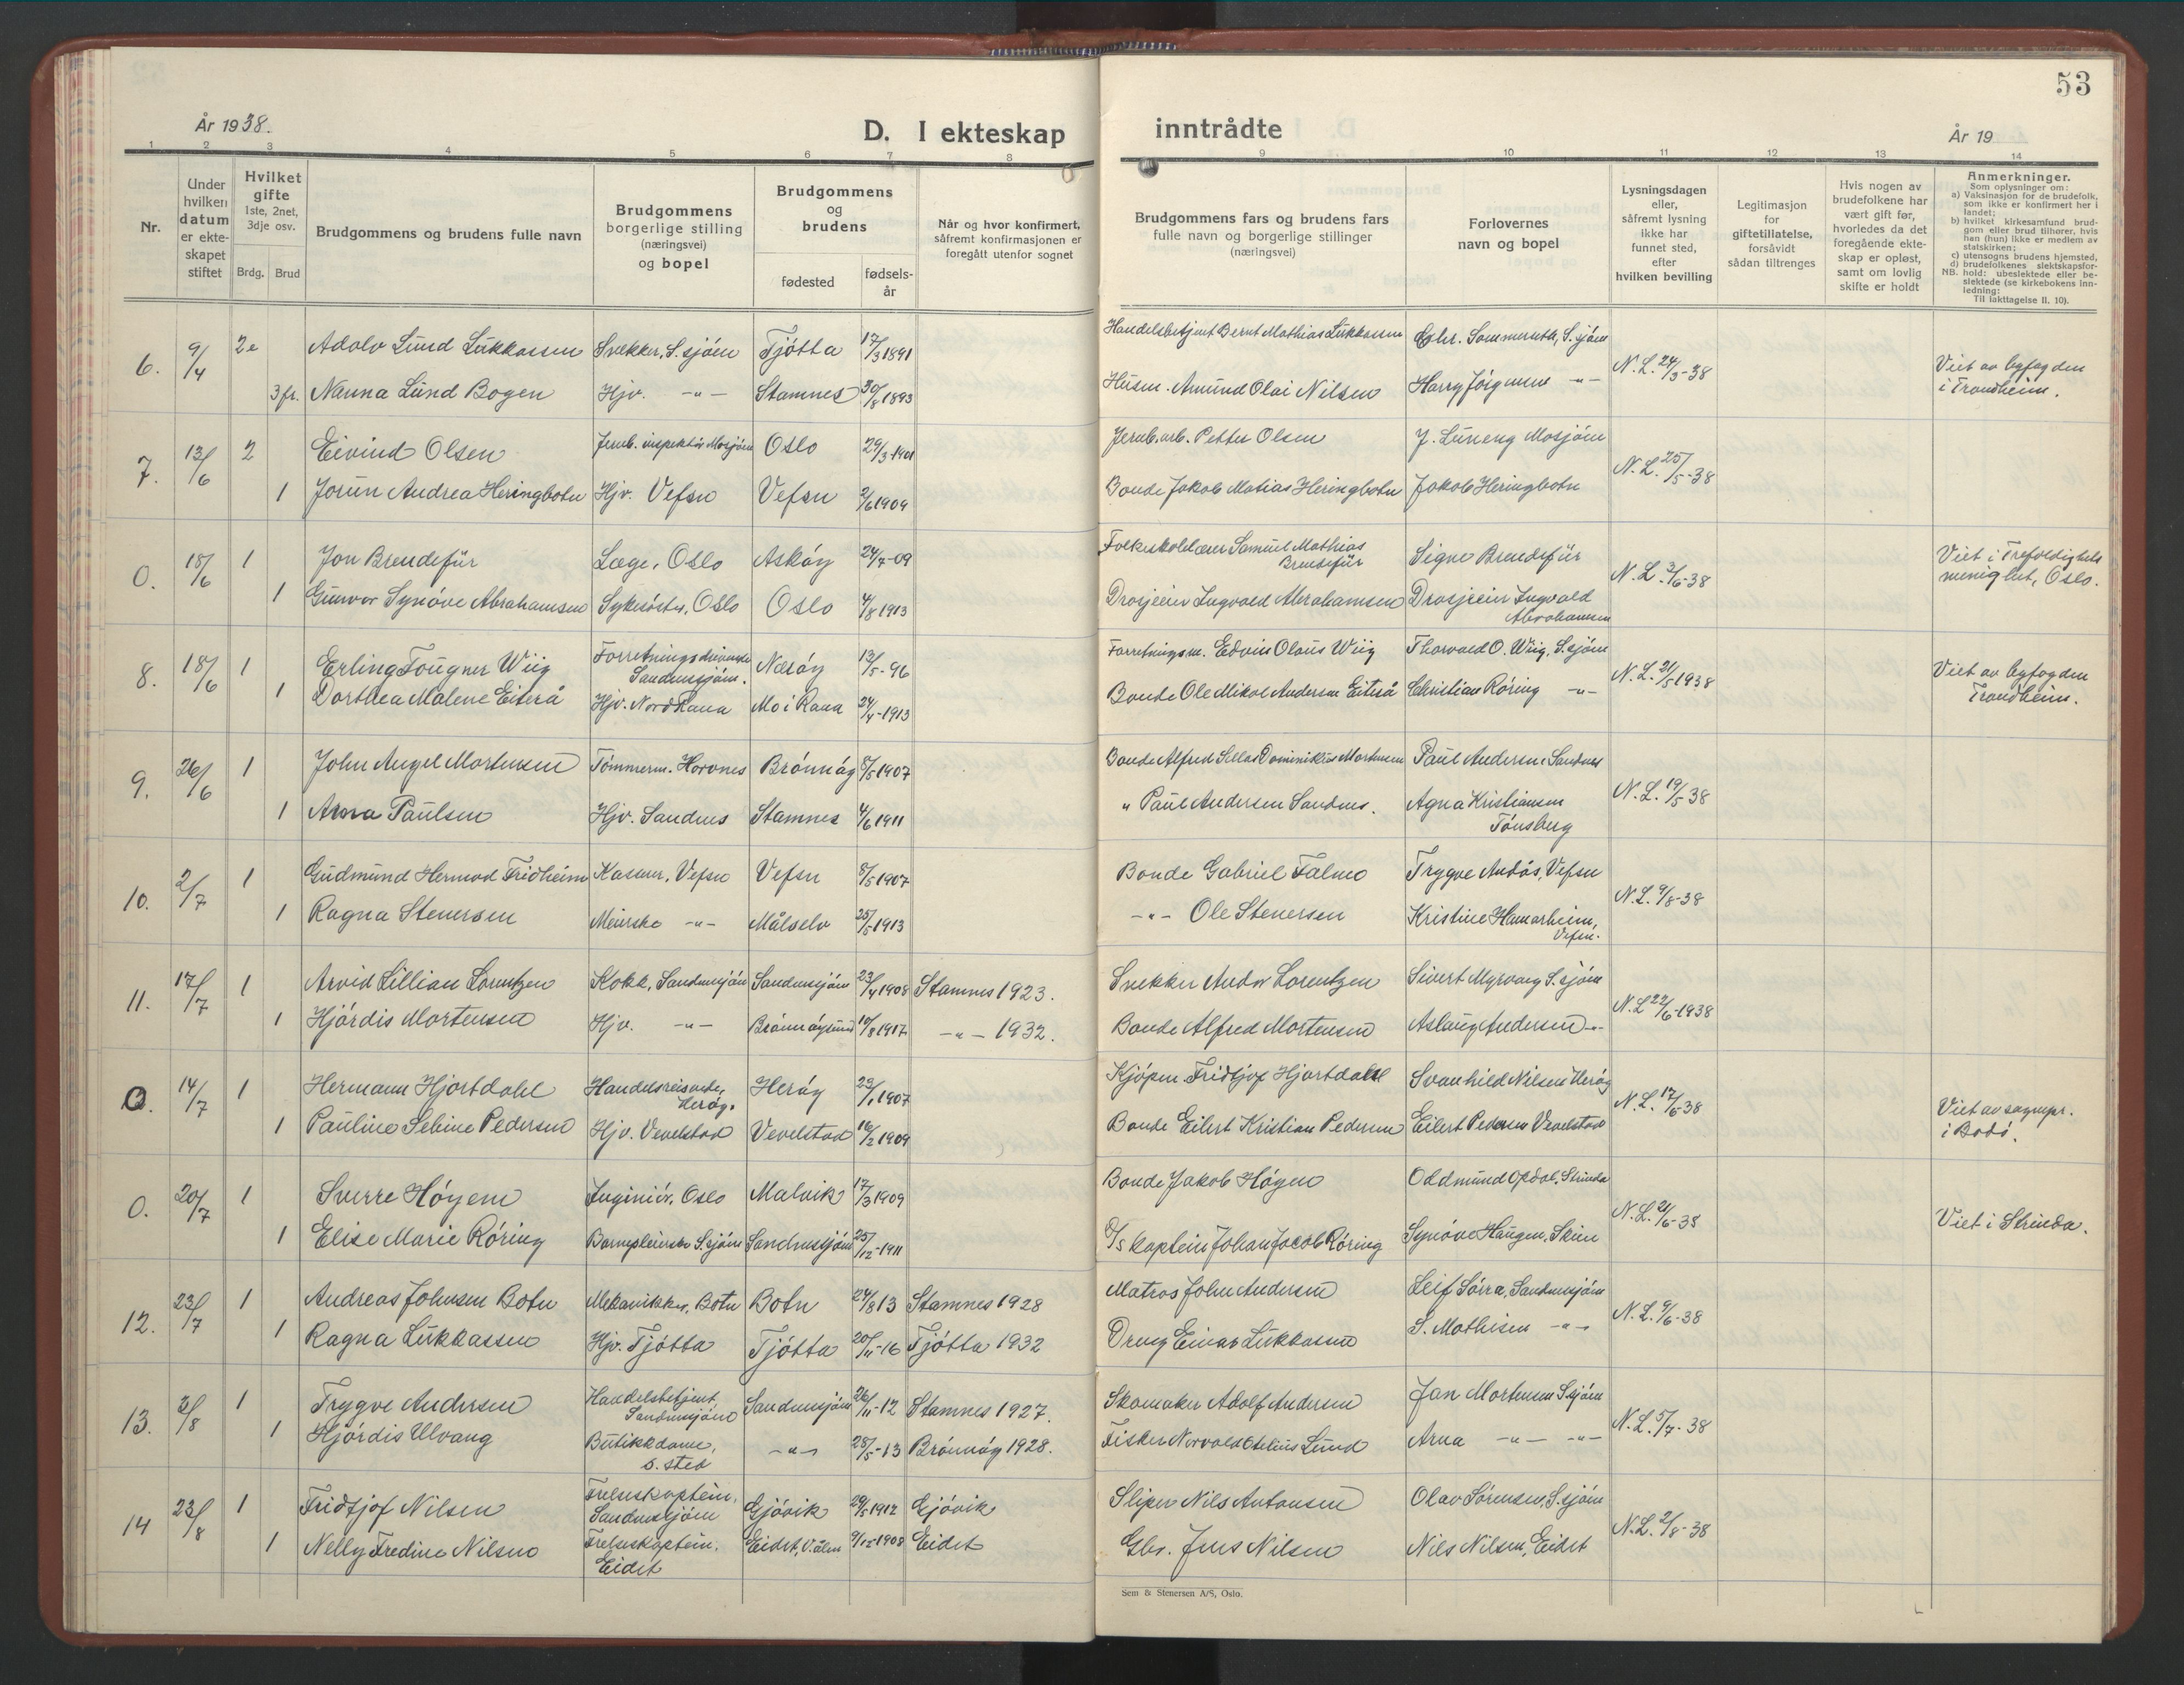 53
År 1938.
D. I ekteskap
inntrådte
År 19
1 2 3 4 5 6 7 8 9 10 11 12 13 14
Nr.
Under hvilken datum er ekteskapet stiftet
Hvilket gifte
1ste, 2net, 3dje osv.
Brdg. Brud
Brudgommens og brudens fulle navn
Brudgommens borgerlige stilling (næringsvei) og bopel
Brudgommens og brudens
fødested
fødsels-år
Når og hvor konfirmert, såfremt konfirmasjonen er foregått utenfor sognet
Brudgommens fars og brudens fars fulle navn og borgerlige stillinger (næringsvei)
Forlovernes navn og bopel
Lysningsdagen eller, såfremt lysning ikke har funnet sted, efter hvilken bevilling
Legitimasjon for giftetillatelse, forsåvidt sådan tiltrenges
Hvis nogen av brudefolkene har vært gift før, hvorledes da det foregående ekteskap er opløst, samt om lovlig skifte er holdt
Anmerkninger.
Som oplysninger om:
a) Vaksinasjon for de brudefolk, som ikke er konfirmert her i landet;
b) hvilket kirkesamfund brudgom eller brud tilhører, hvis han (hun) ikke er medlem av statskirken;
c) utensogns brudens hjemsted,
d) brudefolkenes slektskapsforhold: ubeslektede eller beslektede (se kirkebokens innledning:
NB. Til iakttagelse II, 10).
6. 9/4 2e Adolv Lund Lukkassen Snekker, S.sjøen Tjøtta 17/3 1891 Handelsbetjent Bernt Mathias Lukkassen Chr. Sommerseth, S.sjøen N.L. 24/3-38 Viet av byfogden
3 fr. Nanna Lund Bogen Hjv. -"- Stamnes 30/8 1893 Husm. Amund Olai Nilsen Harry Jørgensen -"- i Trondheim.
7. 13/6 2 Eivind Olsen Jernb. inspektør Mosjøen Oslo 29/3 1901 Jernb.arb. Petter Olsen J. Luneng Mosjøen N.L. 25/5-38
1 Jorun Andrea Heringbotn Hjv. Vefsn Vefsn 2/6 1909 Bonde Jakob Matias Heringbotn Jakob Heringbotn
0. 18/6 1 Jon Brendefür Læge, Oslo Askøy 24/7-09 Folkeskolelærer Samuel Mathias Brendefür Signe Brendefür N.L. 3/6-38 Viet i Trefoldighets
1 Gunvor Synøve Abrahamsen Sykesøster, Oslo Oslo 4/8 1913 Drosjeeier Ingvald Abrahamsen Drosjeeier Ingvald Abrahamsen menighet, Oslo.
8. 18/6 1 Erling Fougner Wiig Forretningsdrivende Sandnessjøen. Nærøy 13/5-96 Forretningsm. Edvin Olaus Wiig Thorvald O. Wiig, S.sjøen N.L. 21/5 1938 Viet av byfogden
1 Dorthea Malene Eiterå Hjv. Nord Rana Mo i Rana 24/4-1913 Bonde Ole Mikal Andersen Eiterå Christian Røring -"- Trondheim.
9. 26/6 1 John Angel Mortensen Tømmerm. Horvnes Brønnøy 8/5 1907 Bonde Alfred Sellas Dominikus Mortensen Paul Andersen Sandnes N.L. 19/5 38
1 Anna Paulsen Hjv. Sandnes Stamnes 4/6 1911 " Paul Andersen Sandnes. Agna Kristiansen Tønsberg
10. 2/7 1 Gudmund Hermod Fridheim Kasser, Vefsn Vefsn 8/5 1907 Bonde Gabriel Falmo Trygve Andås, Vefsn N.L. 9/8-38
1 Ragna Stenersen Meierske -"- Målselv 25/5 1913 -"- Ole Stenersen Kristine Hamarheim, Vefsn.
11. 17/7 1 Arvid Lillian Lorentzen Kokk, Sandnessjøen Sandnessjøen 23/4 1908 Stamnes 1923. Snekker Andor Lorentzen Sivert Myrvang S.sjøen N.L. 22/6-1938
1 Hjørdis Mortensen Hjv. -"- Brønnøysund 10/8 1917 -"- 1932. Bonde Alfred Mortensen Aslaug Andersen -"-
0. 14/7 1 Hermann Hjortdahl Handelsreisende, Herøy. Herøy 23/1 1907 Kjøpm. Fridtjof Hjortdahl Svanhild Nilsen Herøy N.L. 17/6-38 Viet av sognepr.
1 Pauline Seline Pedersen Hjv. Vevelstad Vevelstad 16/2 1909 Bonde Eilert Kristian Pedersen Eilert Pedersen Vevelstad i Bodø.
0. 20/7 1 Sverre Høyem Ingeniør, Oslo Malvik 17/3 1909 Bonde Jakob Høyem Oddmund Opdal, Strinda N.L. 21/6-38 Viet i Strinda.
1 Elise Marie Røring Barnepleierske S.sjøen Sandnessjøen 25/12-1911 D/S kaptein Johan Jacob Røring Synøve Haugen, Skien
12. 23/7 1 Andreas Johnsen Botn Mekanikker, Botn Botn 24/8 13 Stamnes 1928 Matros John Andersen Leif Sørra, Sandnessjøen N.L. 9/6-38
1 Ragna Lukkassen Hjv. Tjøtta Tjøtta 20/11-16 Tjøtta 1932 Dreng Einar Lukkassen S. Mathisen -"-
13. 2/8 1 Trygve Andersen Handelsbetjent Sandnessjøen Sandnessjøen 26/11-12 Stamnes 1927. Skomaker Adolf Andersen Jan Mortensen S.sjøen N.L. 5/7-38
1 Hjørdis Ulvang Butikkdame, s. sted -"- 28/5-13 Brønnøy 1928. Fisker Norvald Lund Arna -"- -"-
14 23/8 1 Fridtjof Nilsen Frelseskaptein, Sandnessjøen Gjøvik 29/5 1912 Gjøvik Sliper Nils Antonsen Olav Sørensen, S.sjøen N.L. 2/8-38
1 Nelly Fredine Nilsen Frelseskaptein, Eidet Eidet 9/12-1908 Eidet Gbr. Jens Nilsen Nils Nilsen, Eidet
Sem & Stenersen A/S, Oslo.